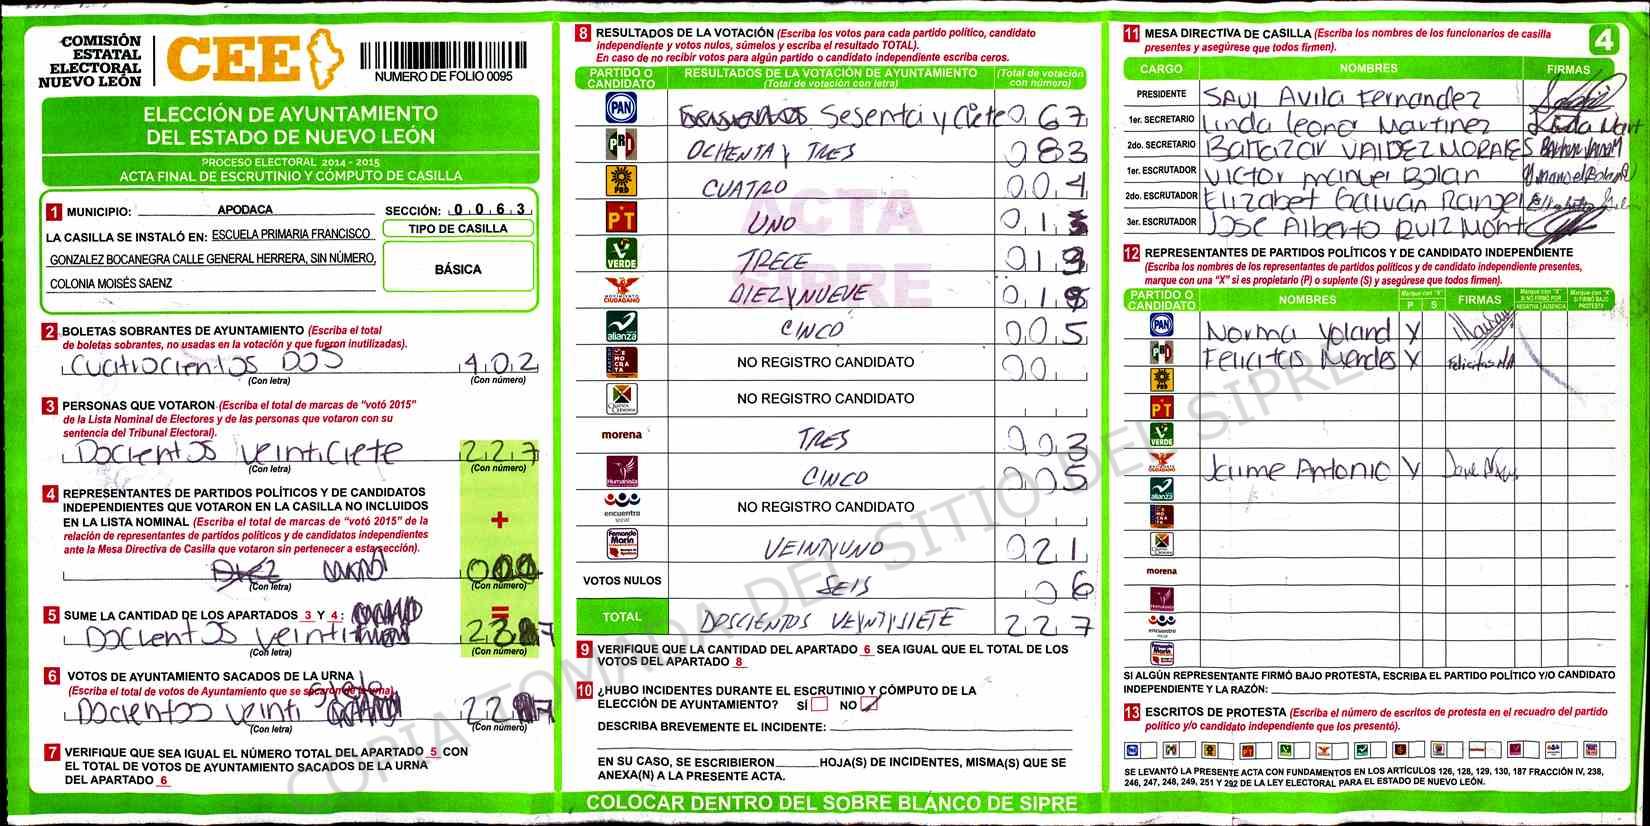 COMISIÓN
ESTATAL
ELECTORAL
NUEVO LEÓN
CEE
NUMERO DE FOLIO 0095
ELECCIÓN DE AYUNTAMIENTO
DEL ESTADO DE NUEVO LEÓN
PROCESO ELECTORAL 2014 - 2015
ACTA FINAL DE ESCRUTINIO Y CÓMPUTO DE CASILLA
1 MUNICIPIO: APODACA SECCIÓN: 0 0 6 3
LA CASILLA SE INSTALÓ EN: ESCUELA PRIMARIA FRANCISCO
GONZALEZ BOCANEGRA CALLE GENERAL HERRERA, SIN NÚMERO,
COLONIA MOISÉS SAENZ
TIPO DE CASILLA
BÁSICA
2 BOLETAS SOBRANTES DE AYUNTAMIENTO (Escriba el total
de boletas sobrantes, no usadas en la votación y que fueron inutilizadas).
Cuatrocientos DOS 4 0 2
(Con letra) (Con número)
3 PERSONAS QUE VOTARON (Escriba el total de marcas de "votó 2015"
de la Lista Nominal de Electores y de las personas que votaron con su
sentencia del Tribunal Electoral).
Docientos veinticiete 2 2 7
(Con letra) (Con número)
4 REPRESENTANTES DE PARTIDOS POLÍTICOS Y DE CANDIDATOS
INDEPENDIENTES QUE VOTARON EN LA CASILLA NO INCLUIDOS
EN LA LISTA NOMINAL (Escriba el total de marcas de "votó 2015" de la
relación de representantes de partidos políticos y de candidatos independientes
ante la Mesa Directiva de Casilla que votaron sin pertenecer a esta sección).
+
(Con letra) (Con número)
5 SUME LA CANTIDAD DE LOS APARTADOS 3 Y 4: =
Docientos veinti
(Con letra) (Con número)
6 VOTOS DE AYUNTAMIENTO SACADOS DE LA URNA
(Escriba el total de votos de Ayuntamiento que se sacaron de la urna)
Docientos veinti siete 2 2 7
(Con letra) (Con número)
7 VERIFIQUE QUE SEA IGUAL EL NÚMERO TOTAL DEL APARTADO 5 CON
EL TOTAL DE VOTOS DE AYUNTAMIENTO SACADOS DE LA URNA
DEL APARTADO 6
8 RESULTADOS DE LA VOTACIÓN (Escriba los votos para cada partido político, candidato
independiente y votos nulos, súmelos y escriba el resultado TOTAL).
En caso de no recibir votos para algún partido o candidato independiente escriba ceros.
PARTIDO O CANDIDATO RESULTADOS DE LA VOTACIÓN DE AYUNTAMIENTO (Total de votación con letra) (Total de votación con número)
PAN Sesenta y Ciete 0 6 7
PRI OCHENTA Y TRES 0 8 3
PRD CUATRO 0 0 4
PT UNO 0 1
VERDE TRECE 0 1
MOVIMIENTO CIUDADANO DIEZ Y NUEVE 0 1
alianza CINCO 0 0 5
DEMOCRATA NO REGISTRO CANDIDATO 0 0
NO REGISTRO CANDIDATO
morena TRES 0 0 3
Humanista CINCO 0 0 5
encuentro social NO REGISTRO CANDIDATO
Fernando Marín VEINTIUNO 0 2 1
VOTOS NULOS SEIS 0 6
TOTAL DOSCIENTOS VEINTISIETE 2 2 7
ACTA
SIPRE
9 VERIFIQUE QUE LA CANTIDAD DEL APARTADO 6 SEA IGUAL QUE EL TOTAL DE LOS
VOTOS DEL APARTADO 8
10 ¿HUBO INCIDENTES DURANTE EL ESCRUTINIO Y CÓMPUTO DE LA
ELECCIÓN DE AYUNTAMIENTO? SÍ NO
DESCRIBA BREVEMENTE EL INCIDENTE:
EN SU CASO, SE ESCRIBIERON HOJA(S) DE INCIDENTES, MISMA(S) QUE SE
ANEXA(N) A LA PRESENTE ACTA.
COLOCAR DENTRO DEL SOBRE BLANCO DE SIPRE
11 MESA DIRECTIVA DE CASILLA (Escriba los nombres de los funcionarios de casilla
presentes y asegúrese que todos firmen).
4
CARGO NOMBRES FIRMAS
PRESIDENTE SAUL Avila Fernandez
1er. SECRETARIO Linda Leonor Martinez
2do. SECRETARIO Baltazar VALDEZ MORALES
1er. ESCRUTADOR Victor manuel Bolan
2do. ESCRUTADOR Elizabet Galvan Rangel
3er. ESCRUTADOR JOSE Alberto RUIZ
12 REPRESENTANTES DE PARTIDOS POLÍTICOS Y DE CANDIDATO INDEPENDIENTE
(Escriba los nombres de los representantes de partidos políticos y de candidato independiente presentes,
marque con una "X" si es propietario (P) o suplente (S) y asegúrese que todos firmen).
PARTIDO O CANDIDATO NOMBRES Marque con "X" P S FIRMAS Marque con "X" SI NO FIRMÓ POR NEGATIVA AUSENCIA Marque con "X" SI FIRMÓ BAJO PROTESTA
PAN Norma Yoland X
PRI Felicitas Mendes X
PRD
PT
VERDE
CIUDADANO Jaime Antonio X
alianza
morena
Humanista
encuentro
SI ALGÚN REPRESENTANTE FIRMÓ BAJO PROTESTA, ESCRIBA EL PARTIDO POLÍTICO Y/O CANDIDATO
INDEPENDIENTE Y LA RAZÓN:
13 ESCRITOS DE PROTESTA (Escriba el número de escritos de protesta en el recuadro del partido
político y/o candidato independiente que los presentó).
SE LEVANTÓ LA PRESENTE ACTA CON FUNDAMENTOS EN LOS ARTÍCULOS 126, 128, 129, 130, 187 FRACCIÓN IV, 238,
246, 247, 248, 249, 251 Y 292 DE LA LEY ELECTORAL PARA EL ESTADO DE NUEVO LEÓN.
COPIA TOMADA DEL SITIO DEL SIPRE